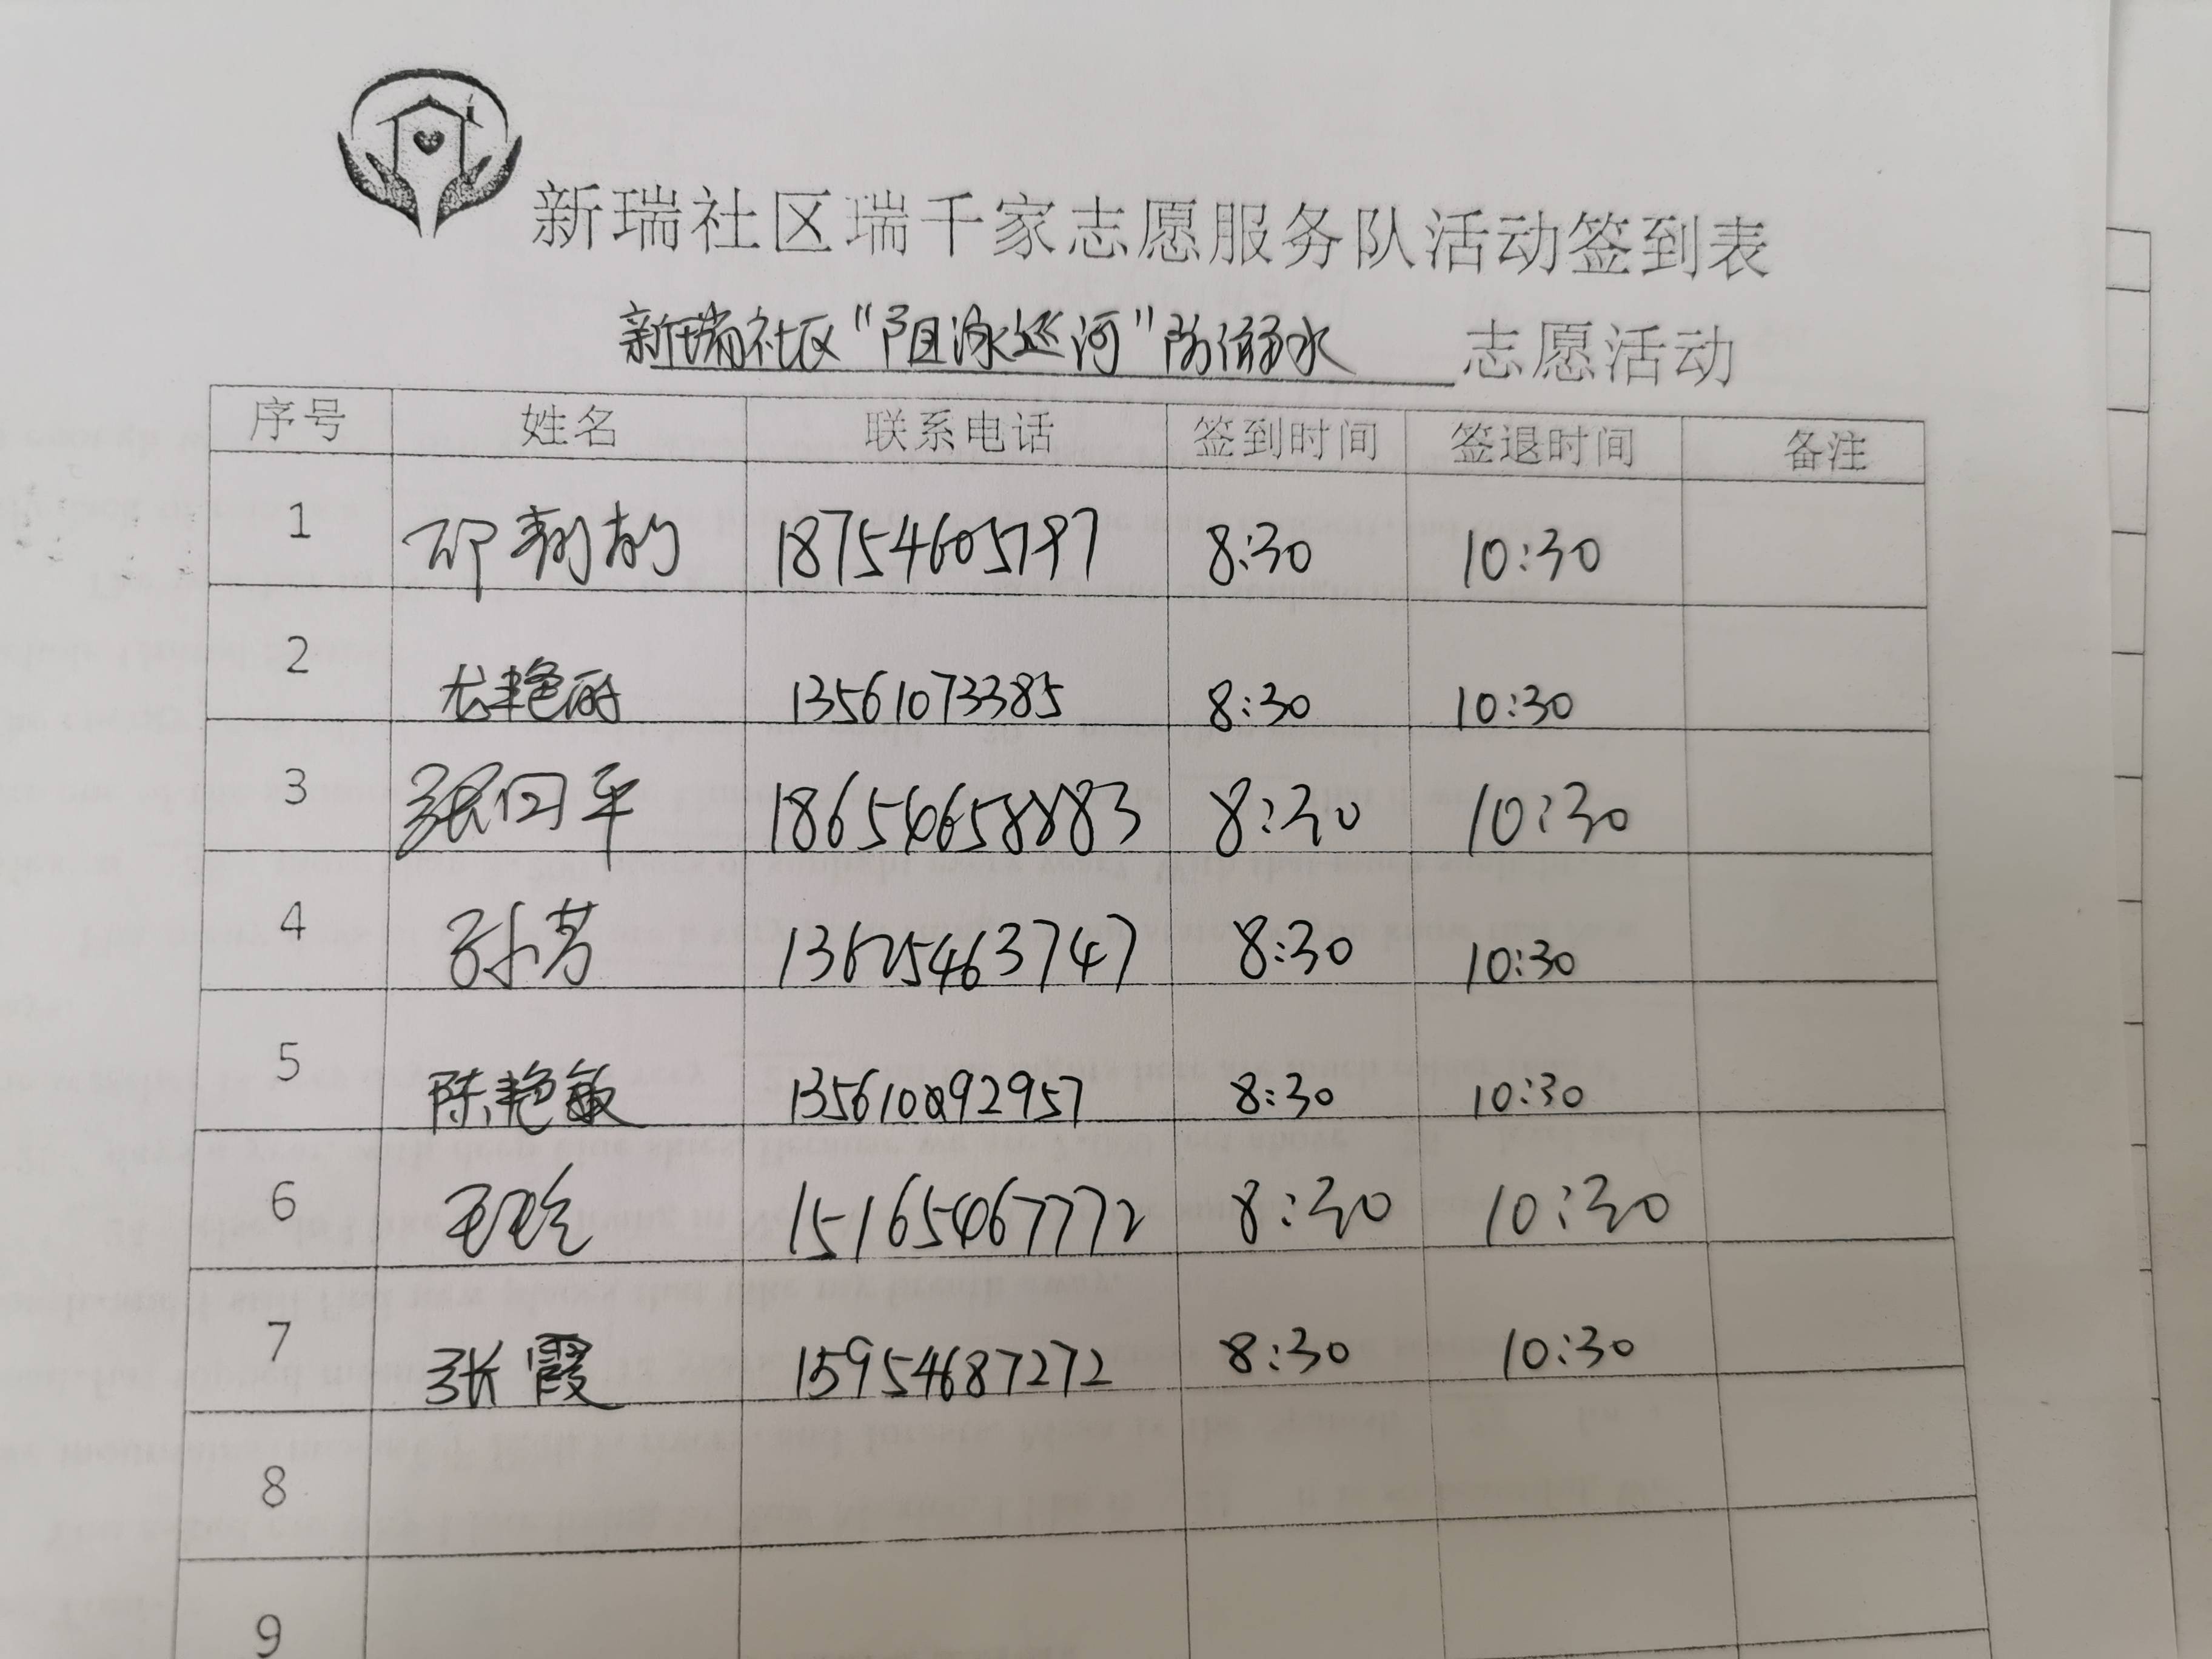 新瑞社区瑞千家志愿服务队活动签到表
新瑞社区“阻泳巡河”防溺水 志愿活动
序号 姓名 联系电话 签到时间 签退时间 备注
1 邵 18754605797 8:30 10:30
2 尤艳丽 13561073385 8:30 10:30
3 张 平 18654658883 8:30 10:30
4 孙芳 8:30 10:30
5 陈艳敏 8:30 10:30
6 15165467772 8:30 10:30
7 张霞 15954687272 8:30 10:30
8
9